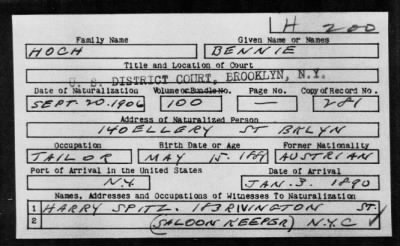 LH 200
Family Name Given Name or Names
HOCH BENNIE
Title and Location of Court
U. S. DISTRICT COURT, BROOKLYN, N.Y.
Date of Naturalization Volume or Bundle No. Page No. Copy of Record No.
SEPT. 20. 1906 100 — 281
Address of Naturalized Person
140 ELLERY ST BKLYN
Occupation Birth Date or Age Former Nationality
TAILOR MAY 15. AUSTRIAN
Port of Arrival in the United States Date of Arrival
N.Y. JAN. 3. 1890
Names, Addresses and Occupations of Witnesses To Naturalization
1 HARRY SPITZ. 183 RIVINGTON ST.
2 (SALOON KEEPER) N.Y.C